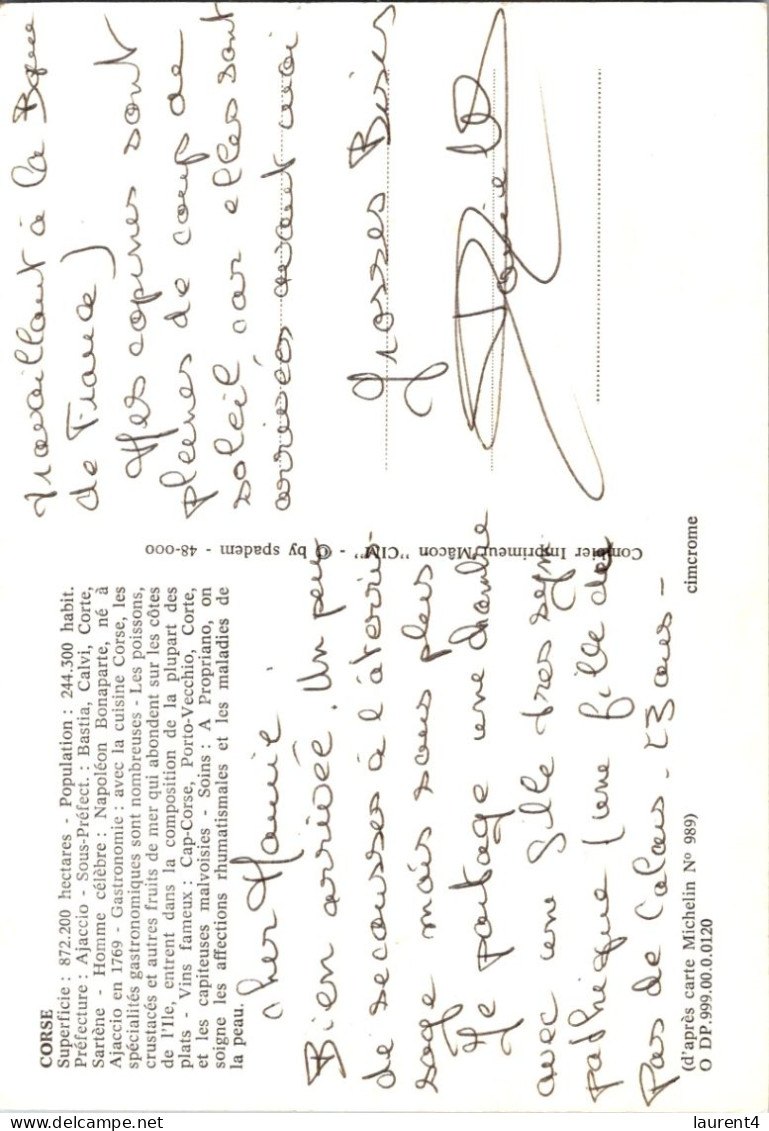 CORSE
Superficie : 872.200 hectares - Population : 244.300 habit.
Préfecture : Ajaccio - Sous-Préfect. : Bastia, Calvi, Corte,
Sartène - Homme célèbre : Napoléon Bonaparte, né à
Ajaccio en 1769 - Gastronomie : avec la cuisine Corse, les
spécialités gastronomiques sont nombreuses - Les poissons,
crustacés et autres fruits de mer qui abondent sur les côtes
de l'Ile, entrent dans la composition de la plupart des
plats - Vins fameux : Cap-Corse, Porto-Vecchio, Corte,
et les capiteuses malvoisies - Soins : A Propriano, on
soigne les affections rhumatismales et les maladies de
la peau.
cher Mamie.
Bien arrivée. Un peu
de secousses à l'áterris-
sage mais sans plus
Je partage une chambre
avec une fille tres sym
pathique (une fille du
Pas de Calais - 23 ans -
(d'après carte Michelin N° 989)
O DP.999.00.0.0120
cimcrome
Combier Imprimeur Mâcon "CIM" - © by spadem - 48-000
travaillant à la Bque
de France)
Mes copines sont
pleines de coup de
soleil car elles sont
arrivées avant moi
Grosses Bises
Danielle
laurent4